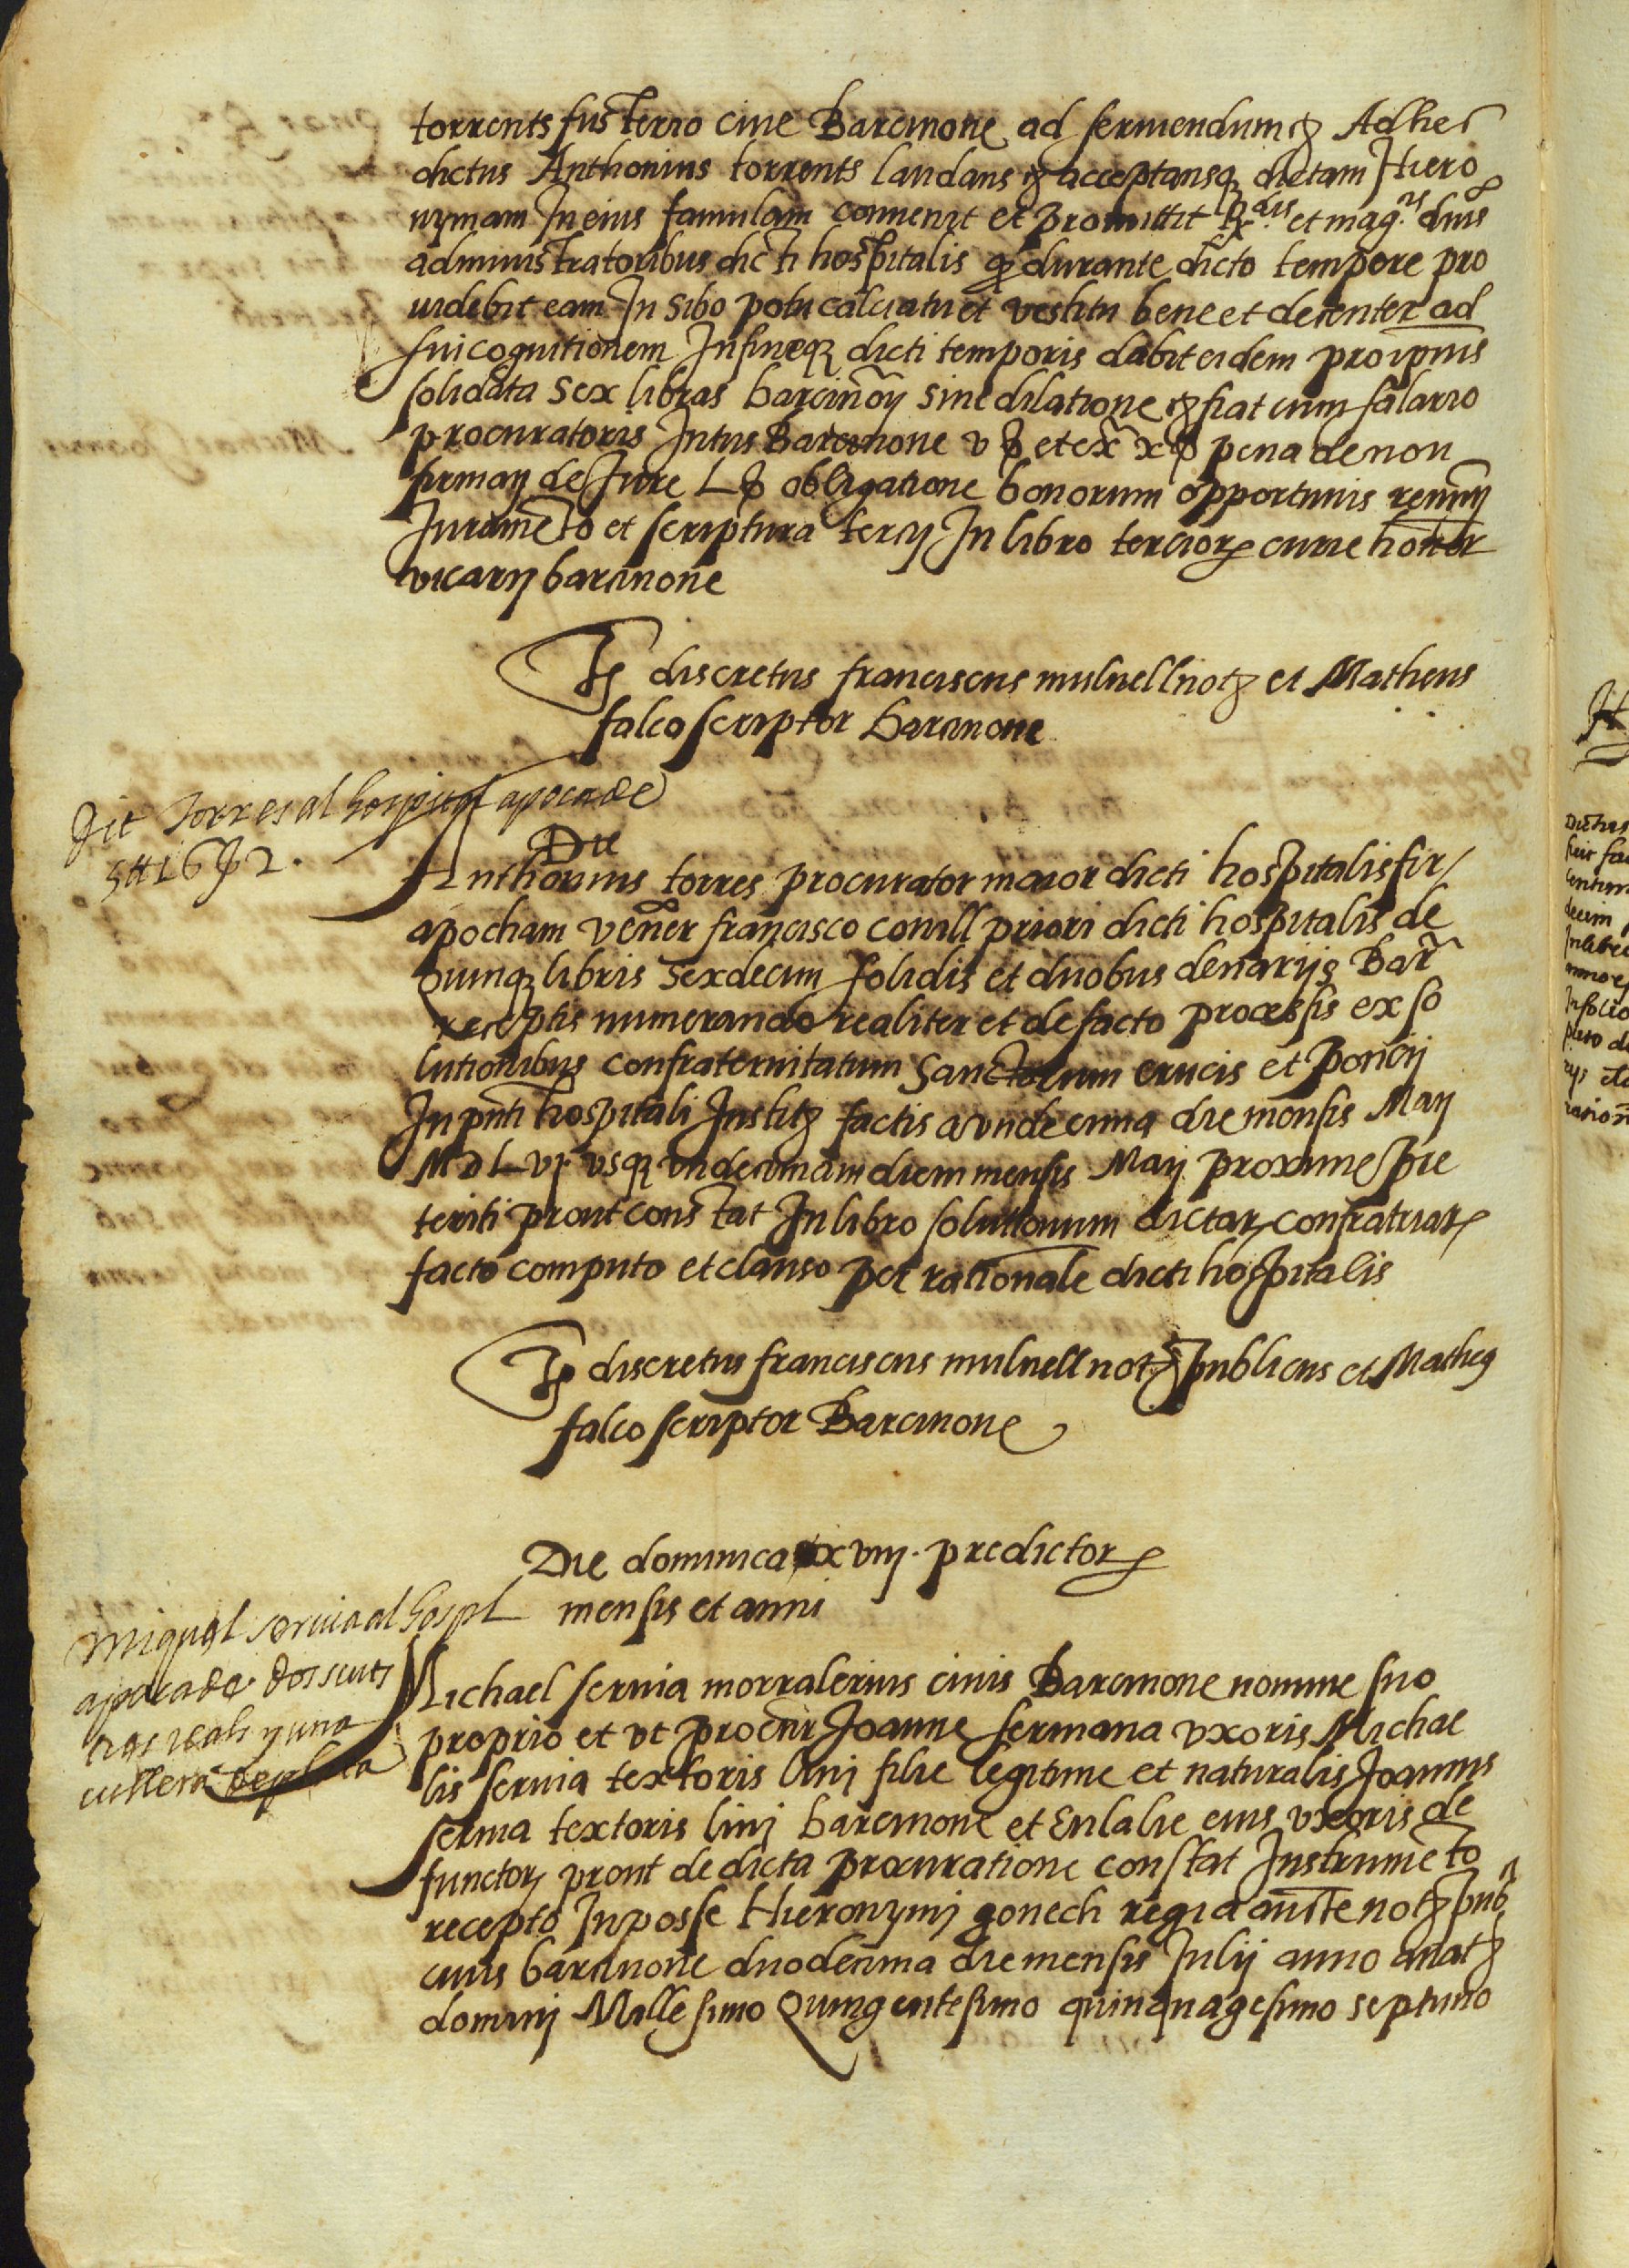 torrents fusterio cive Barcinone ad serviendum etc Adhec
dictus Anthonius torrents laudans et acceptansq dictam Hiero
nymam In eius famulam convenit et promittit Rdis et mag.cis dnis
administratoribus dicti hospitalis q durante dicto tempore pro
videbit eam In sibo potu calciatu et vestitu bene et decenter ad
sui cognitionem Infineq dicti temporis dabit eidem pro ipsius
solidata sex libras barcinon sine dilatione etc fiat cum salario
procuratoris Intus Barcinone v s et ex x s pena de non
firman de Jure L s obligatione bonorum opportunis renun
Jurameto et scriptura tercij In libro tercior curie honor
vicarij barcinone
Ts discretus franciscus mulnell not et Matheus
falco scriptor barcinone
Fit torres al hospital apoca de
5 ll 16 s 2.
Die
Anthonius torres procurator maior dicti hospitalis fir
apocham vener francisco conill priori dicti hospitalis de
quinq libris sexdecim solidis et duobus denarijs Bar
receptis numerando realiter et de facto processis ex so
lutionibus confraternitatum Sanctorum crucis et poncij
In pnti hospitali Instit factis a undecima die mensis Maij
MDLvj usq undecimam diem mensis Maij proxime pre
teriti prout constat In libro solutionum dictar confratriar
facto computo et clauso per rationale dicti hospitalis
Ts discretus franciscus mulnell not publicus et Matheus
falco scriptor Barcinone
Die dominica xviij. predictor
mensis et anni
Miquel servia al hospl
apoca de dos scuts
tres reals y una
cullera de plata
Michael servia morralerius civis Barcinone nomine suo
proprio et ut procur Joanne sermana uxoris Michae
lis servia textoris lini filie legitime et naturalis Joannis
serma textoris lini barcinone et Eulalie eius uxoris de
functor prout de dicta procuratione constat Instrumeto
recepto In posse Hieronymi gonech regia aucte not pub
civis barcinone duodecima die mensis Julij anno a nat
domini Millesimo Quingentesimo quinquagesimo septimo